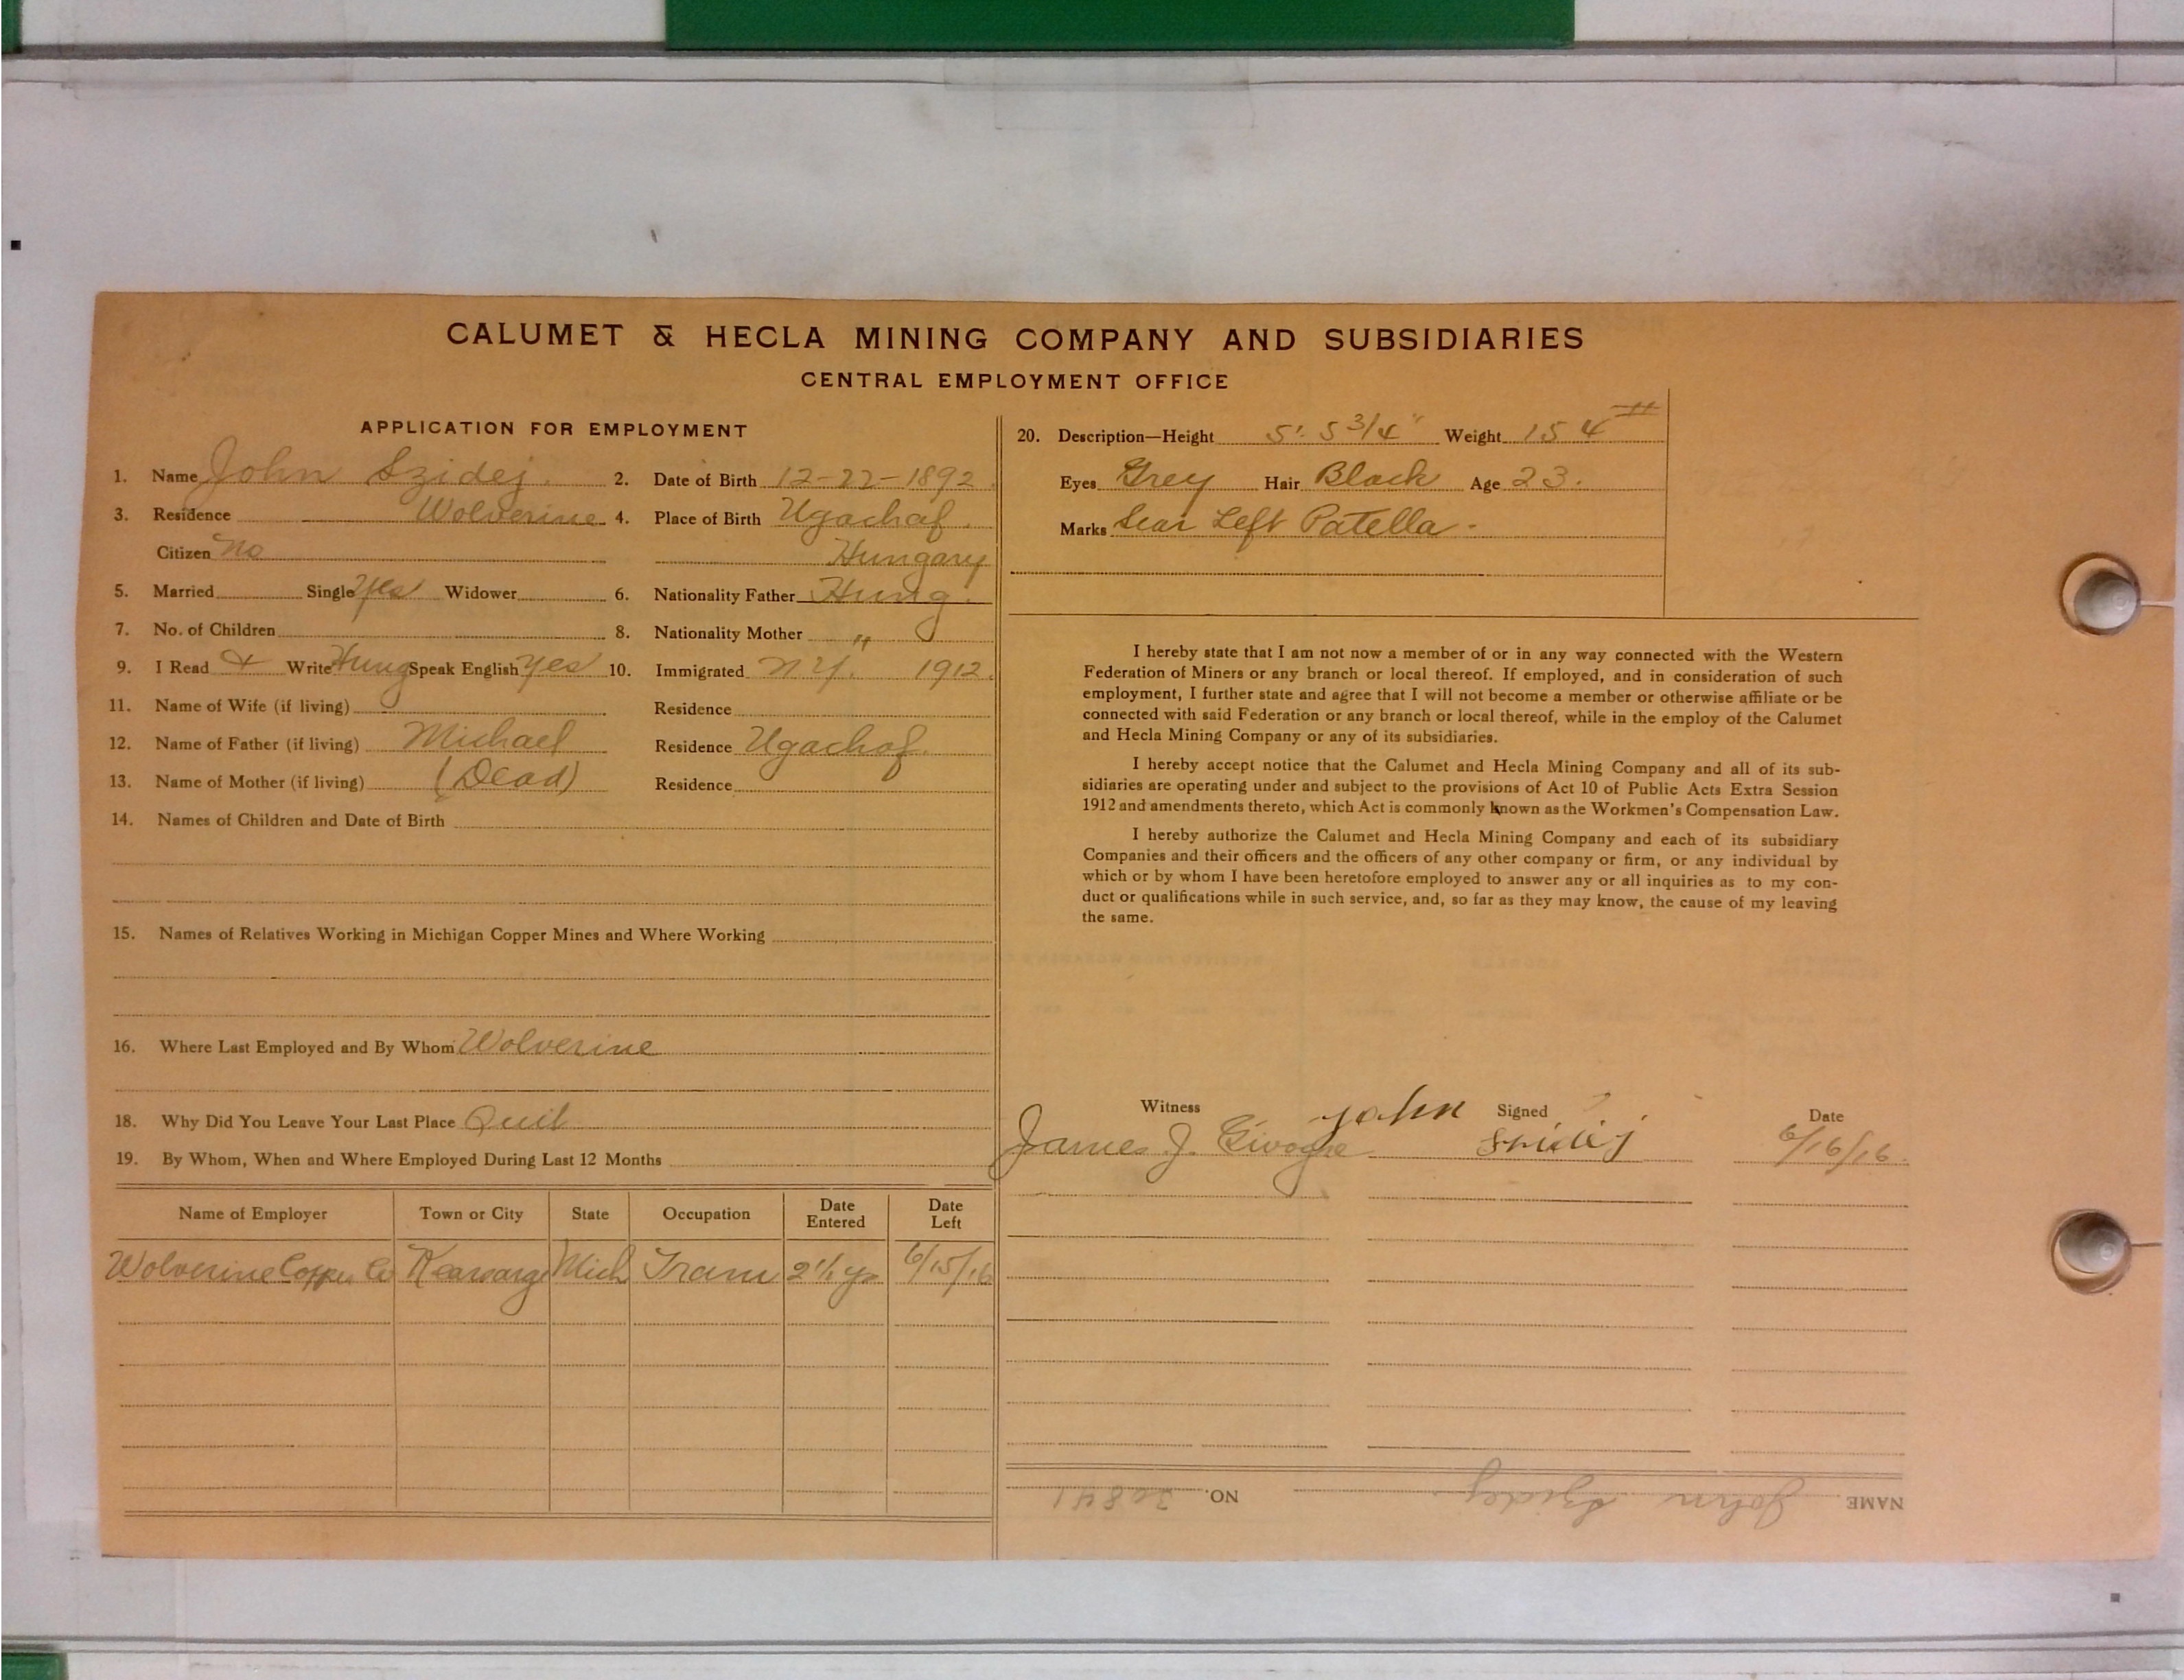 CALUMET & HECLA MINING COMPANY AND SUBSIDIARIES
CENTRAL EMPLOYMENT OFFICE
APPLICATION FOR EMPLOYMENT
1. Name John Szidej. 2. Date of Birth 12-22-1892
3. Residence Wolverine 4. Place of Birth Ugachaf.
Citizen No Hungary
5. Married Single Yes Widower 6. Nationality Father Hung.
7. No. of Children 8. Nationality Mother "
9. I Read & Write Hung Speak English Yes 10. Immigrated N.Y. 1912.
11. Name of Wife (if living) Residence
12. Name of Father (if living) Michael Residence Ugachaf.
13. Name of Mother (if living) (Dead) Residence
14. Names of Children and Date of Birth
15. Names of Relatives Working in Michigan Copper Mines and Where Working
16. Where Last Employed and By Whom Wolverine
18. Why Did You Leave Your Last Place Quit
19. By Whom, When and Where Employed During Last 12 Months
Name of Employer Town or City State Occupation Date Entered Date Left
Wolverine Copper Co Kearsarge Mich Tram 6/15/16
20. Description—Height 5' 5 3/4" Weight 154 #
Eyes Grey Hair Black Age 23.
Marks Scar Left Patella -
I hereby state that I am not now a member of or in any way connected with the Western
Federation of Miners or any branch or local thereof. If employed, and in consideration of such
employment, I further state and agree that I will not become a member or otherwise affiliate or be
connected with said Federation or any branch or local thereof, while in the employ of the Calumet
and Hecla Mining Company or any of its subsidiaries.
I hereby accept notice that the Calumet and Hecla Mining Company and all of its sub-
sidiaries are operating under and subject to the provisions of Act 10 of Public Acts Extra Session
1912 and amendments thereto, which Act is commonly known as the Workmen's Compensation Law.
I hereby authorize the Calumet and Hecla Mining Company and each of its subsidiary
Companies and their officers and the officers of any other company or firm, or any individual by
which or by whom I have been heretofore employed to answer any or all inquiries as to my con-
duct or qualifications while in such service, and, so far as they may know, the cause of my leaving
the same.
Witness Signed Date
James J. John 6/16/16.
NAME John Szidej. NO. 30841